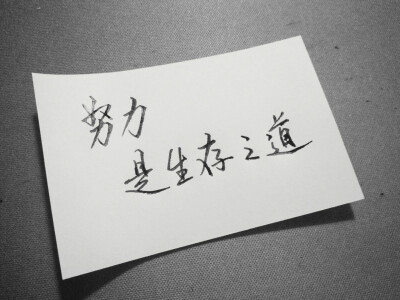 努力
是生存之道